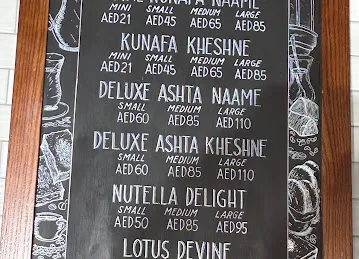 KUNAFA NAAME
MINI SMALL MEDIUM LARGE
AED21 AED45 AED65 AED85
KUNAFA KHESHNE
MINI SMALL MEDIUM LARGE
AED21 AED45 AED65 AED85
DELUXE ASHTA NAAME
SMALL MEDIUM LARGE
AED60 AED85 AED110
DELUXE ASHTA KHESHNE
SMALL MEDIUM LARGE
AED60 AED85 AED110
NUTELLA DELIGHT
SMALL MEDIUM LARGE
AED50 AED85 AED95
LOTUS DEVINE